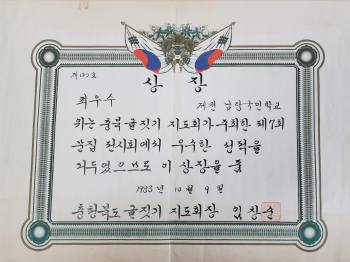 상장
최우수
제천 남당국민학교
위는 충북 글짓기 지도회가 주최한 제7회
문집 전시회에서 우수한 성적을
거두었으므로 이 상장을 줌
1983년 10월 9일
충청북도 글짓기 지도회장